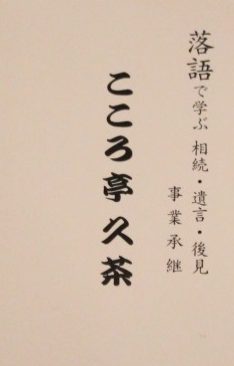 落語で学ぶ 相続・遺言・後見
事業承継
こころ亭久茶